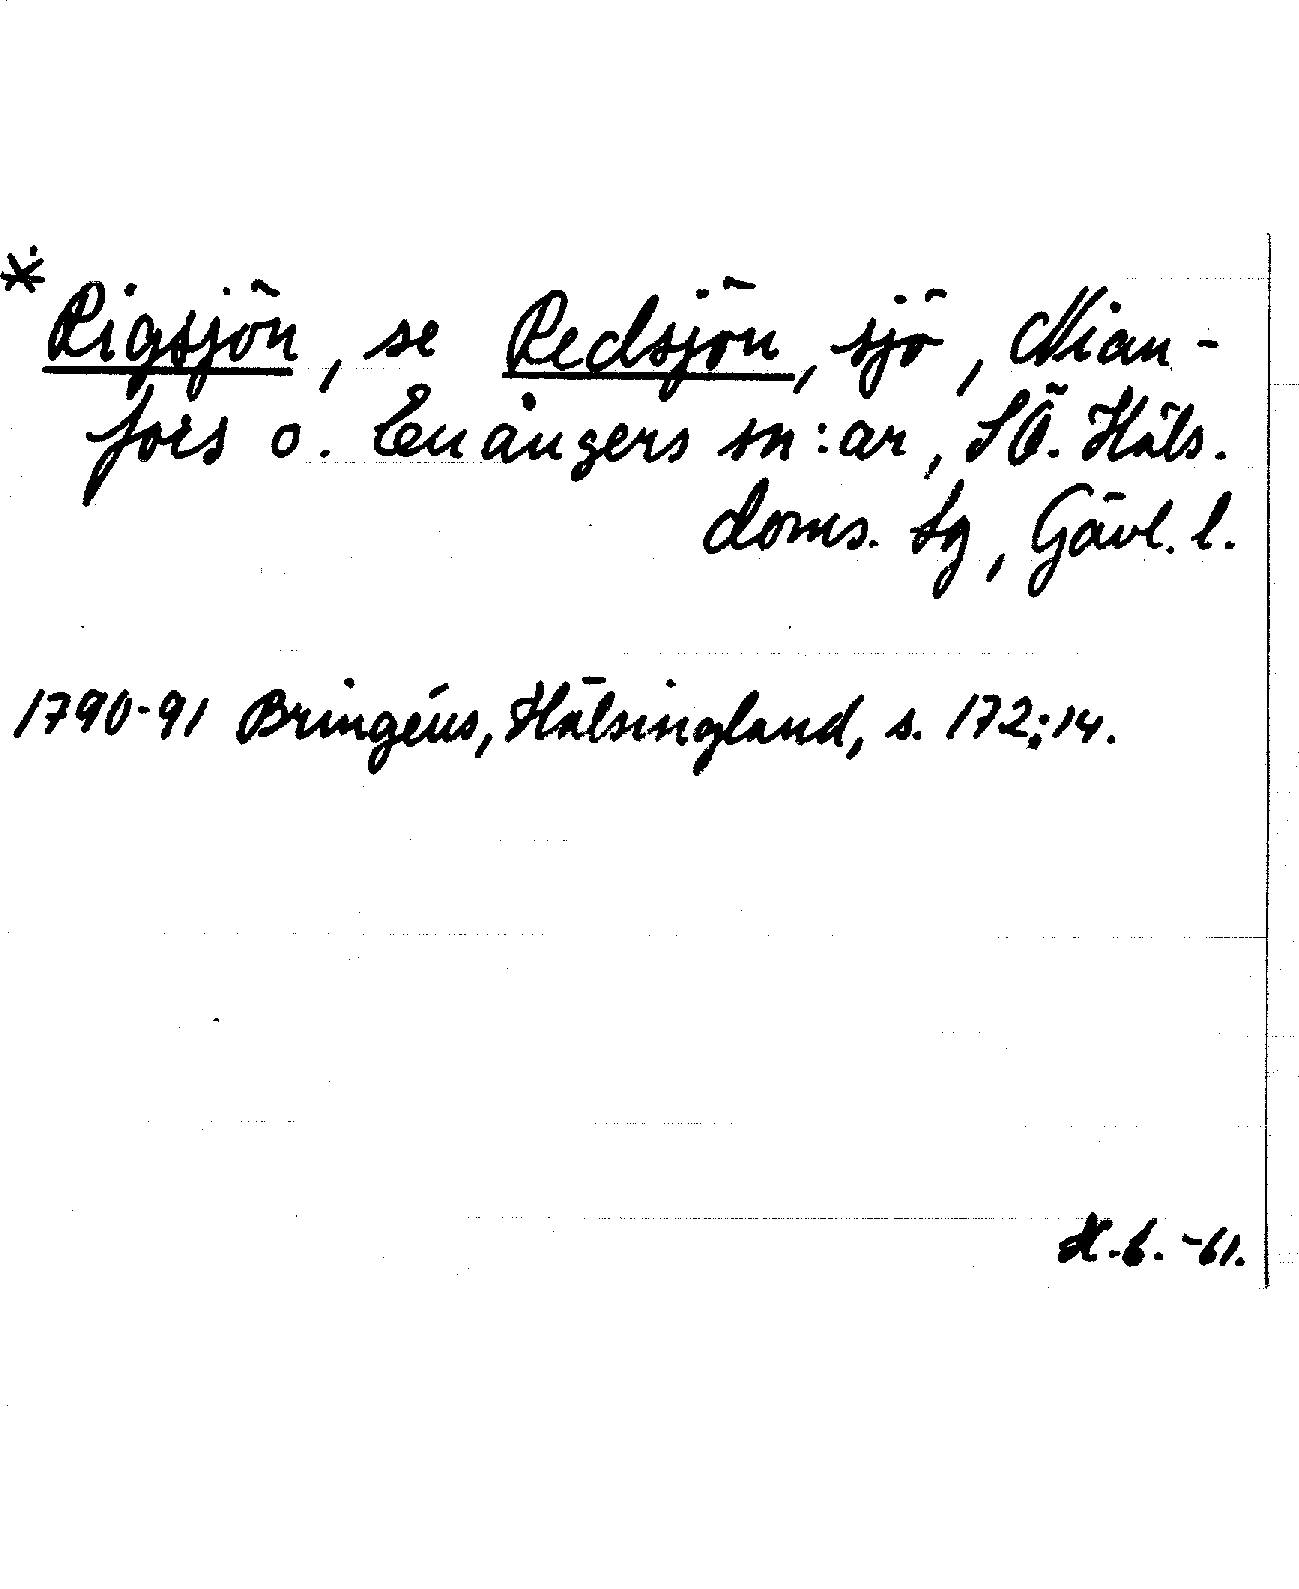 * Rigsjön, se Redsjön, sjö, Nian-
fors o. Enångers sn:ar, SÖ. Häls.
doms. sg, Gävl. l.
1790-91 Bringéus, Hälsingland, s. 172:14.
-61.